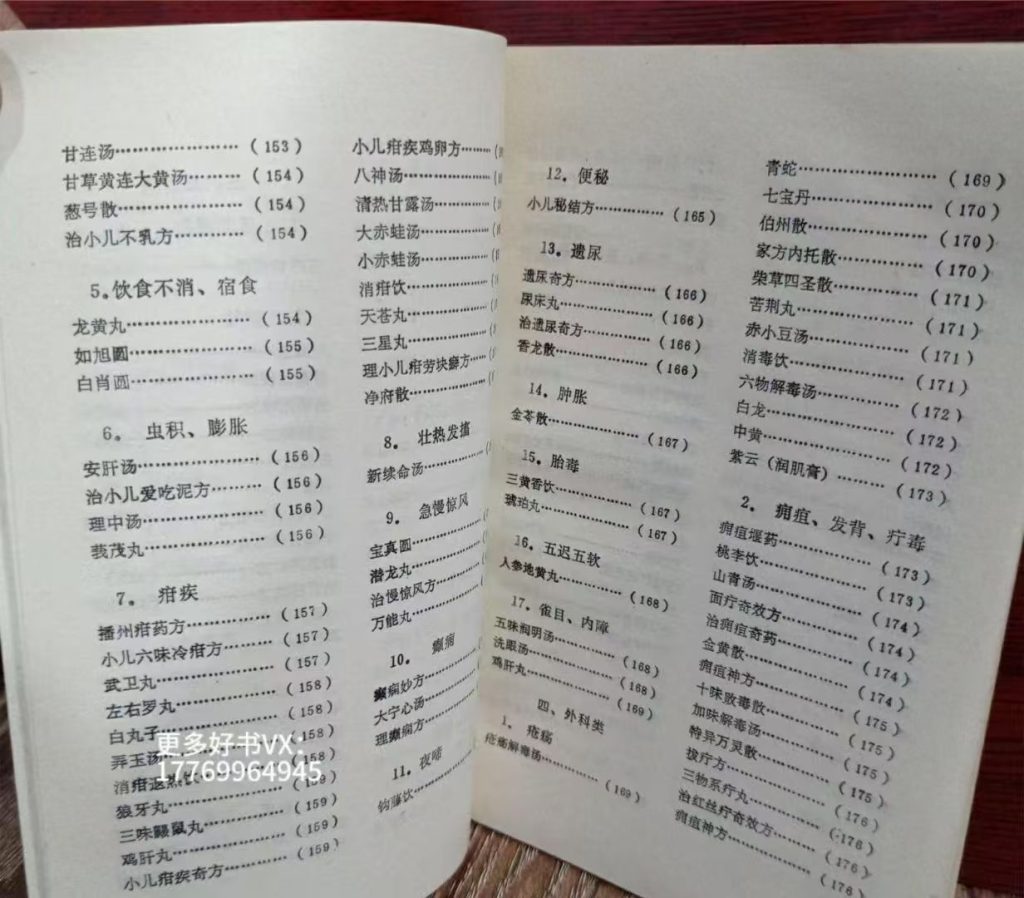 甘连汤……………………（153）
甘草黄连大黄汤………（154）
葱号散……………………（154）
治小儿不乳方…………（154）
5。饮食不消、宿食
龙黄丸……………………（154）
如旭圆……………………（155）
白肖圆……………………（155）
6。 虫积、膨胀
安肝汤……………………（156）
治小儿爱吃泥方………（156）
理中汤……………………（156）
莪茂丸……………………（156）
7。 疳疾
播州疳药方……………（157）
小儿六味冷疳方………（157）
武卫丸……………………（157）
左右罗丸………………（158）
白丸子……………………（158）
弄玉汤……………………（158）
消疳退热饮……………（159）
狼牙丸……………………（159）
三味鼹鼠丸……………（159）
鸡肝丸……………………（159）
小儿疳疾奇方…………（159）
小儿疳疾鸡卵方………
八神汤……………………
清热甘露汤……………
大赤蛙汤………………
小赤蛙汤………………
消疳饮……………………
天苍丸……………………
三星丸……………………
理小儿疳劳块癖方……
净府散……………………
8。 壮热发搐
新续命汤………………
9。 急慢惊风
宝真圆……………………
潜龙丸……………………
治慢惊风方……………
万能丸……………………
10。 癫痫
癫痫妙方………………
大宁心汤………………
理癫痫方………………
11。夜啼
钩藤饮……………………
12。便秘
小儿秘结方……………（165）
13。遗尿
遗尿奇方………………（166）
尿床丸……………………（166）
治遗尿奇方……………（166）
香龙散……………………（166）
14。肿胀
金苓散……………………（167）
15。胎毒
三黄香饮………………（167）
琥珀丸……………………（167）
16。五迟五软
人参地黄丸……………（168）
17。雀目、内障
五味润明汤……………（168）
洗眼汤……………………（168）
鸡肝丸……………………（169）
四、外科类
1。 疮疡
疮疡解毒汤……………（169）
青蛇………………………（169）
七宝丹……………………（170）
伯州散……………………（170）
家方内托散……………（170）
柴草四圣散……………（171）
苦荆丸……………………（171）
赤小豆汤………………（171）
消毒饮……………………（171）
六物解毒汤……………（172）
白龙………………………（172）
中黄………………………（172）
紫云（润肌膏）………（173）
2。 痈疽、发背、疔毒
痈疽堰药………………（173）
桃李饮……………………（173）
山青汤……………………（174）
面疔奇效方……………（174）
治痈疽奇药……………（174）
金黄散……………………（174）
痈疽神方………………（175）
十味败毒散……………（175）
加味解毒汤……………（175）
特异万灵散……………（175）
拔疔方……………………（176）
三物系疔丸……………（176）
治红丝疔奇效方………（176）
痈疽神方………………（176）
更多好书VX：
17769964945